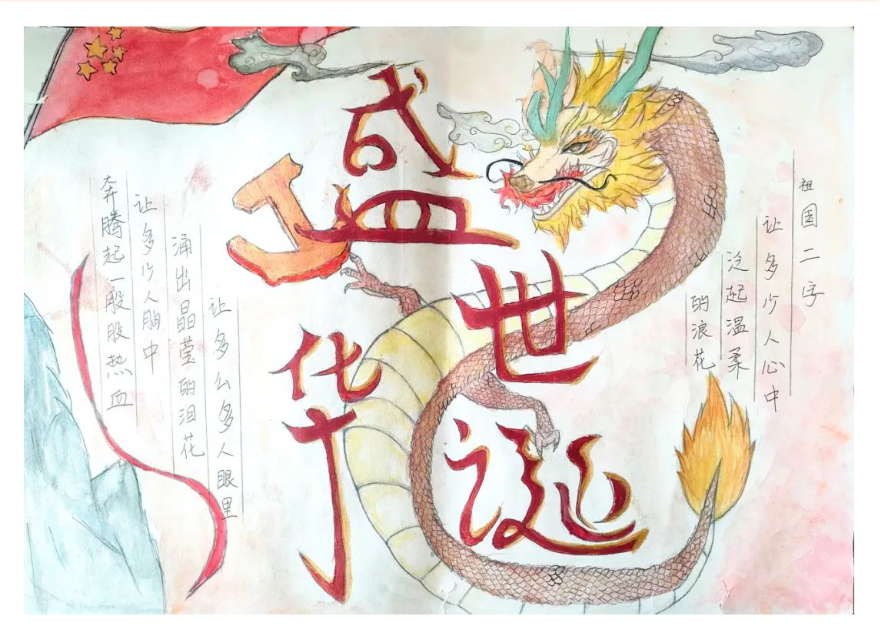 盛
世
华
诞
祖国二字
让多少人心中
泛起温柔
的浪花
让多么多人眼里
涌出晶莹的泪花
让多少人胸中
奔腾起一股股热血